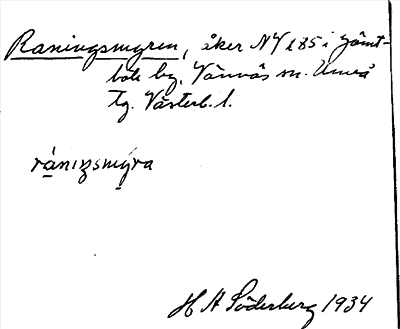 Raningsmyren, åker NV i 85 i Jämt-
böle by. Vännäs sn. Umeå
tg. Västerb. l.
råniŋsmyra
H A Söderberg 1934